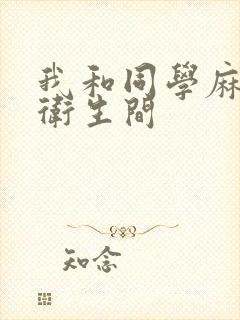 我和同學麻
衛生間
知念